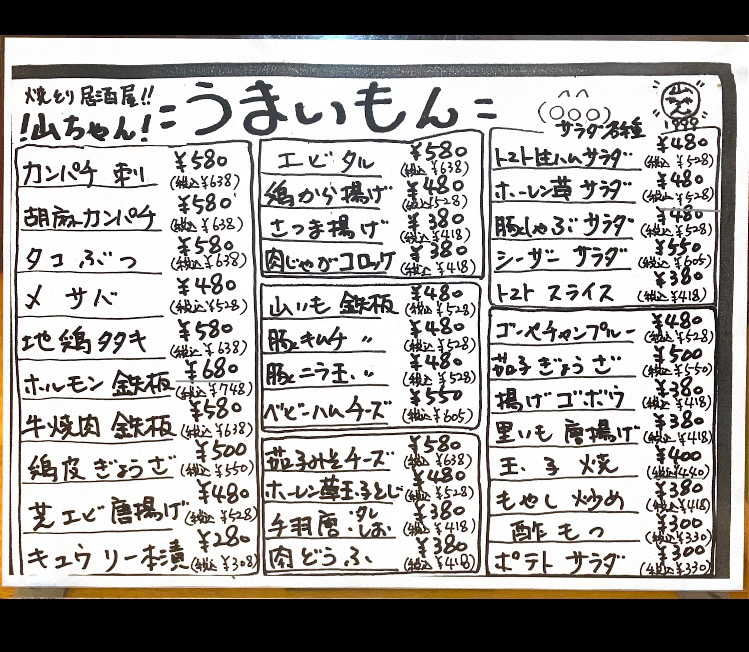 焼とり居酒屋!!
!山ちゃん!
=うまいもん=
カンパチ 刺 ¥580
(税込¥638)
胡麻カンパチ ¥580
(税込¥638)
タコ ぶつ ¥580
(税込¥638)
〆 サバ ¥480
(税込¥528)
地鶏タタキ ¥580
(税込¥638)
ホルモン 鉄板 ¥680
(税込¥748)
牛焼肉 鉄板 ¥580
(税込¥638)
鶏皮 ぎょうざ ¥500
(税込¥550)
芝エビ 唐揚げ ¥480
(税込¥528)
キュウリ一本漬 ¥280
(税込¥308)
エビ タル ¥580
(税込¥638)
鶏から揚げ ¥480
(税込¥528)
さつま揚げ ¥380
(税込¥418)
肉じゃがコロッケ ¥380
(税込¥418)
山いも 鉄板 ¥480
(税込¥528)
豚とキムチ 〃 ¥480
(税込¥528)
豚とニラ玉 〃 ¥480
(税込¥528)
ベビーハムチーズ ¥550
(税込¥605)
茄子みそチーズ ¥580
(税込¥638)
ホーレン草玉子とじ ¥480
(税込¥528)
手羽唐・タレ・しお ¥380
(税込¥418)
肉どうふ ¥380
(税込¥418)
サラダ各種
トマト生ハムサラダ ¥480
(税込¥528)
ホーレン草 サラダ ¥480
(税込¥528)
豚しゃぶ サラダ ¥480
(税込¥528)
シーザー サラダ ¥550
(税込¥605)
トマト スライス ¥380
(税込¥418)
ゴーヤチャンプルー ¥480
(税込¥528)
茄子ぎょうざ ¥500
(税込¥550)
揚げゴボウ ¥380
(税込¥418)
里いも 唐揚げ ¥380
(税込¥418)
玉子焼 ¥400
(税込¥440)
もやし 炒め ¥380
(税込¥418)
酢もつ ¥300
(税込¥330)
ポテト サラダ ¥300
(税込¥330)